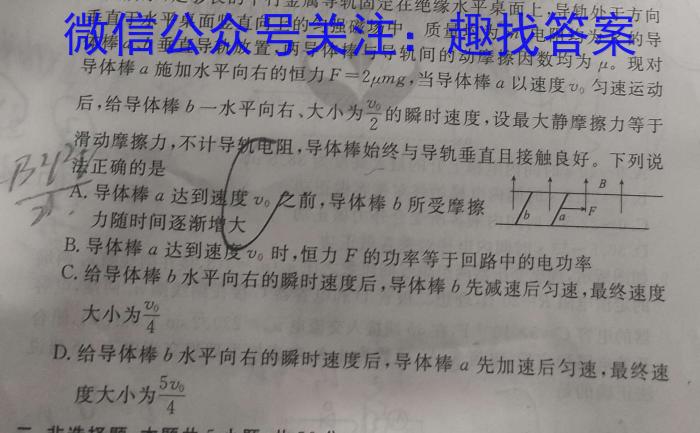 足够长的平行金属导轨固定在绝缘水平桌面上,导轨处于方向
微信公众号关注:趣找答案
导体棒 a 施加水平向右的恒力 F=2μmg,当导体棒 a 以速度 v₀ 匀速运动
后,给导体棒 b 一水平向右、大小为 v₀/2 的瞬时速度,设最大静摩擦力等于
滑动摩擦力,不计导轨电阻,导体棒始终与导轨垂直且接触良好。下列说
法正确的是
A. 导体棒 a 达到速度 v₀ 之前,导体棒 b 所受摩擦
力随时间逐渐增大
B
b
a
F
B. 导体棒 a 达到速度 v₀ 时,恒力 F 的功率等于回路中的电功率
C. 给导体棒 b 水平向右的瞬时速度后,导体棒 b 先减速后匀速,最终速度
大小为 v₀/4
D. 给导体棒 b 水平向右的瞬时速度后,导体棒 a 先加速后匀速,最终速
度大小为 5v₀/4